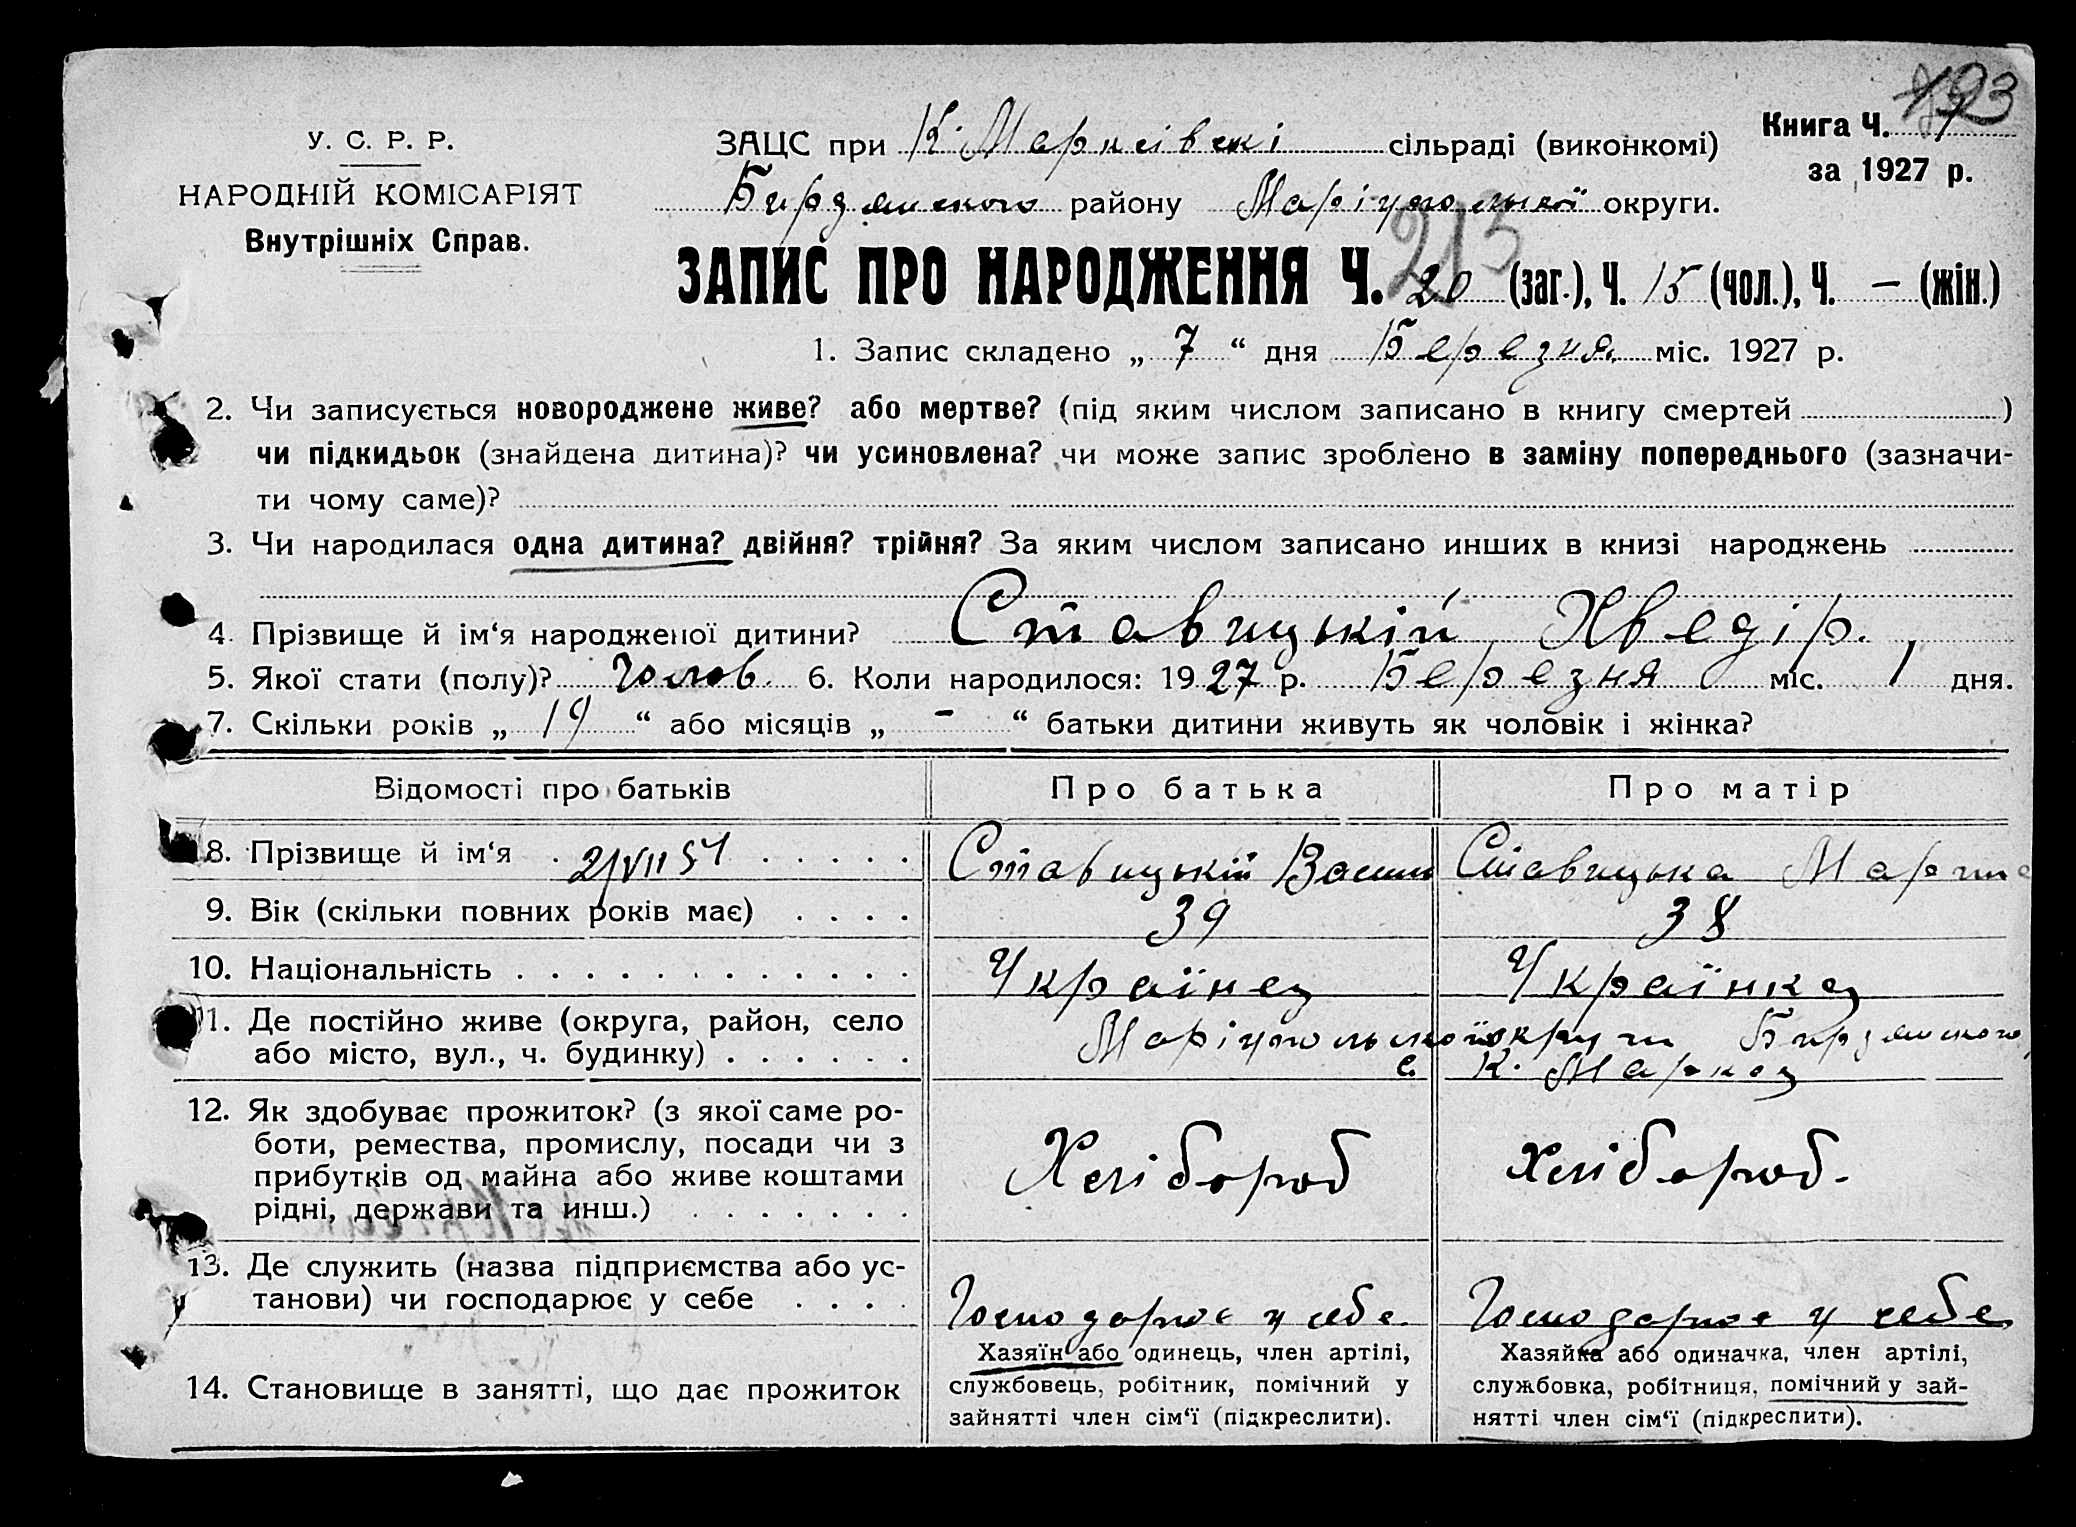 У. С. Р. Р.
НАРОДНІЙ КОМІСАРІЯТ
Внутрішніх Справ.
ЗАЦС при К. Марксівскі сільраді (виконкомі)
Бирдянського району Маріупольської округи.
Книга Ч. 1
за 1927 р.
213
ЗАПИС ПРО НАРОДЖЕННЯ Ч. 20 (заг.), Ч. 15 (чол.), Ч. — (жін.)
1. Запис складено „ 7 “ дня Березня міс. 1927 р.
2. Чи записується новороджене живе? або мертве? (під яким числом записано в книгу смертей )
чи підкидьок (знайдена дитина)? чи усиновлена? чи може запис зроблено в заміну попереднього (зазначи-
ти чому саме)?
3. Чи народилася одна дитина? двійня? трійня? За яким числом записано инших в книзі народжень
4. Прізвище й ім‘я народженої дитини? Ставицькій Хведір.
5. Якої стати (полу)? Чолов. 6. Коли народилося: 1927 р. Березня міс. 1 дня.
7. Скільки років „ 19 “ або місяців „ - “ батьки дитини живуть як чоловік і жінка?
Відомості про батьків Про батька Про матір
8. Прізвище й ім‘я . 2/VII 51 . . . . . Ставицькій Ставицька
9. Вік (скільки повних років має) . . . . 39 38
10. Національність . . . . . . . . . . . . . Українец Українка
11. Де постійно живе (округа, район, село Маріупольської округи Бирдянського
або місто, вул., ч. будинку) . . . . . . с. К. Маркса
12. Як здобуває прожиток? (з якої саме ро-
боти, ремества, промислу, посади чи з Хлібороб хлібороб.
прибутків од майна або живе коштами
рідні, держави та инш.) . . . . . . .
13. Де служить (назва підприємства або ус-
танови) чи господарює у себе . . . . Господарює у себе. Господарює у себе
14. Становище в занятті, що дає прожиток
Хазяїн або одинець, член артілі,
службовець, робітник, помічний у
зайнятті член сім‘ї (підкреслити).
Хазяйка або одиначка, член артілі,
службовка, робітниця, помічний у зай-
нятті член сім‘ї (підкреслити).